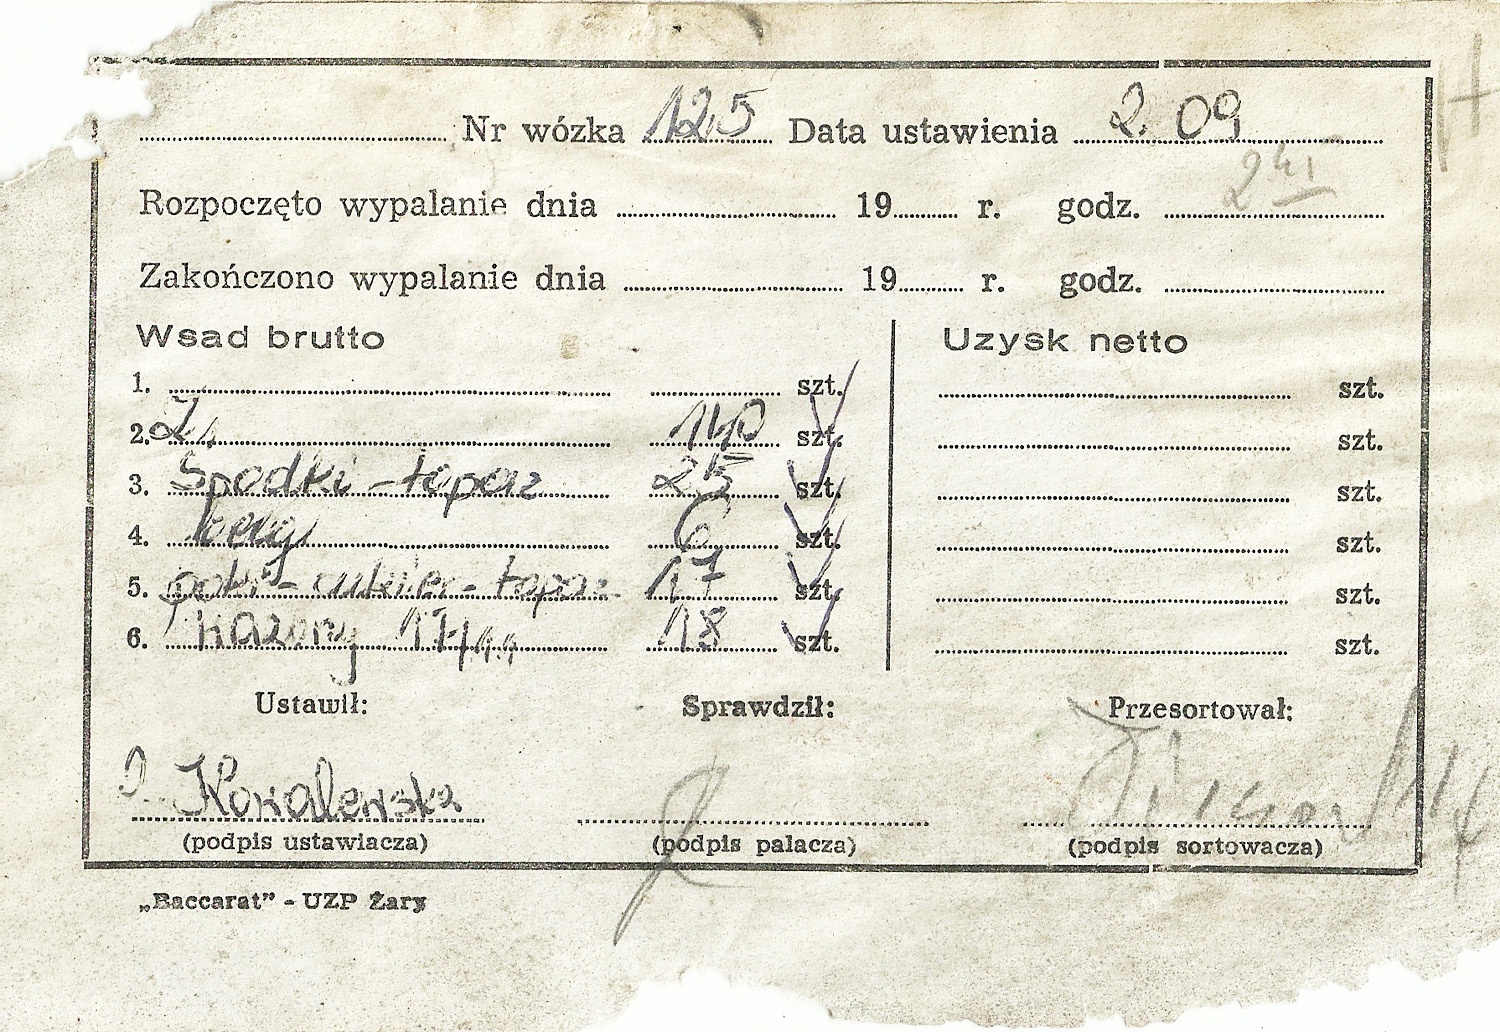 Nr wózka 125 Data ustawienia 2. 09
Rozpoczęto wypalanie dnia 19 r. godz.
Zakończono wypalanie dnia 19 r. godz.
Wsad brutto Uzysk netto
1. szt. szt.
2. 140 szt. szt.
3. Spodki - topaz 25 szt. szt.
4. 6 szt. szt.
5. topaz 17 szt. szt.
6. 18 szt. szt.
Ustawił: Sprawdził: Przesortował:
Kowalewska
(podpis ustawiacza) (podpis palacza) (podpis sortowacza)
„Baccarat” - UZP Żary